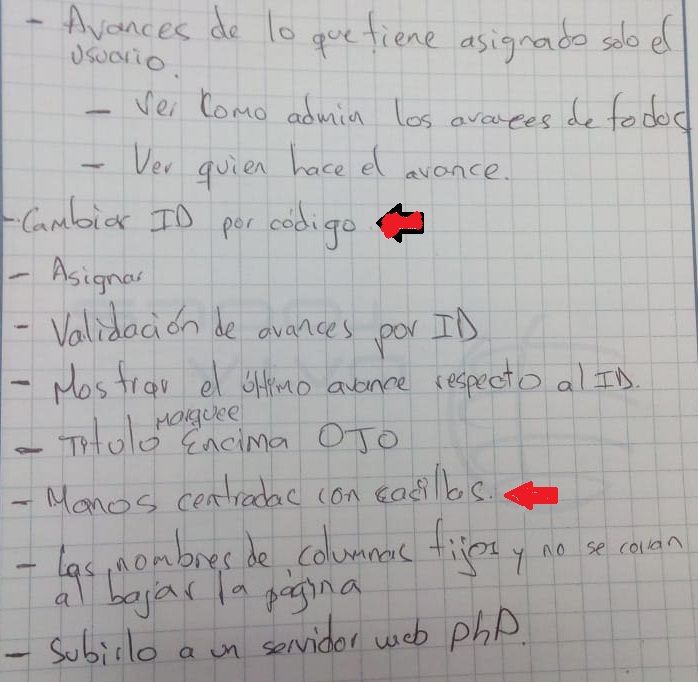 - Avances de lo que tiene asignado solo el
usuario.
- Ver como admin los avances de todos
- Ver quien hace el avance.
- Cambiar ID por código
- Asignar
- Validación de avances por ID
- Mostrar el último avance respecto al ID.
Marquee
- Titulo Encima OJO
- Manos centradas con casillas.
- Las nombres de columnas fijos y no se corran
al bajar la página
- Subirlo a un servidor web php.